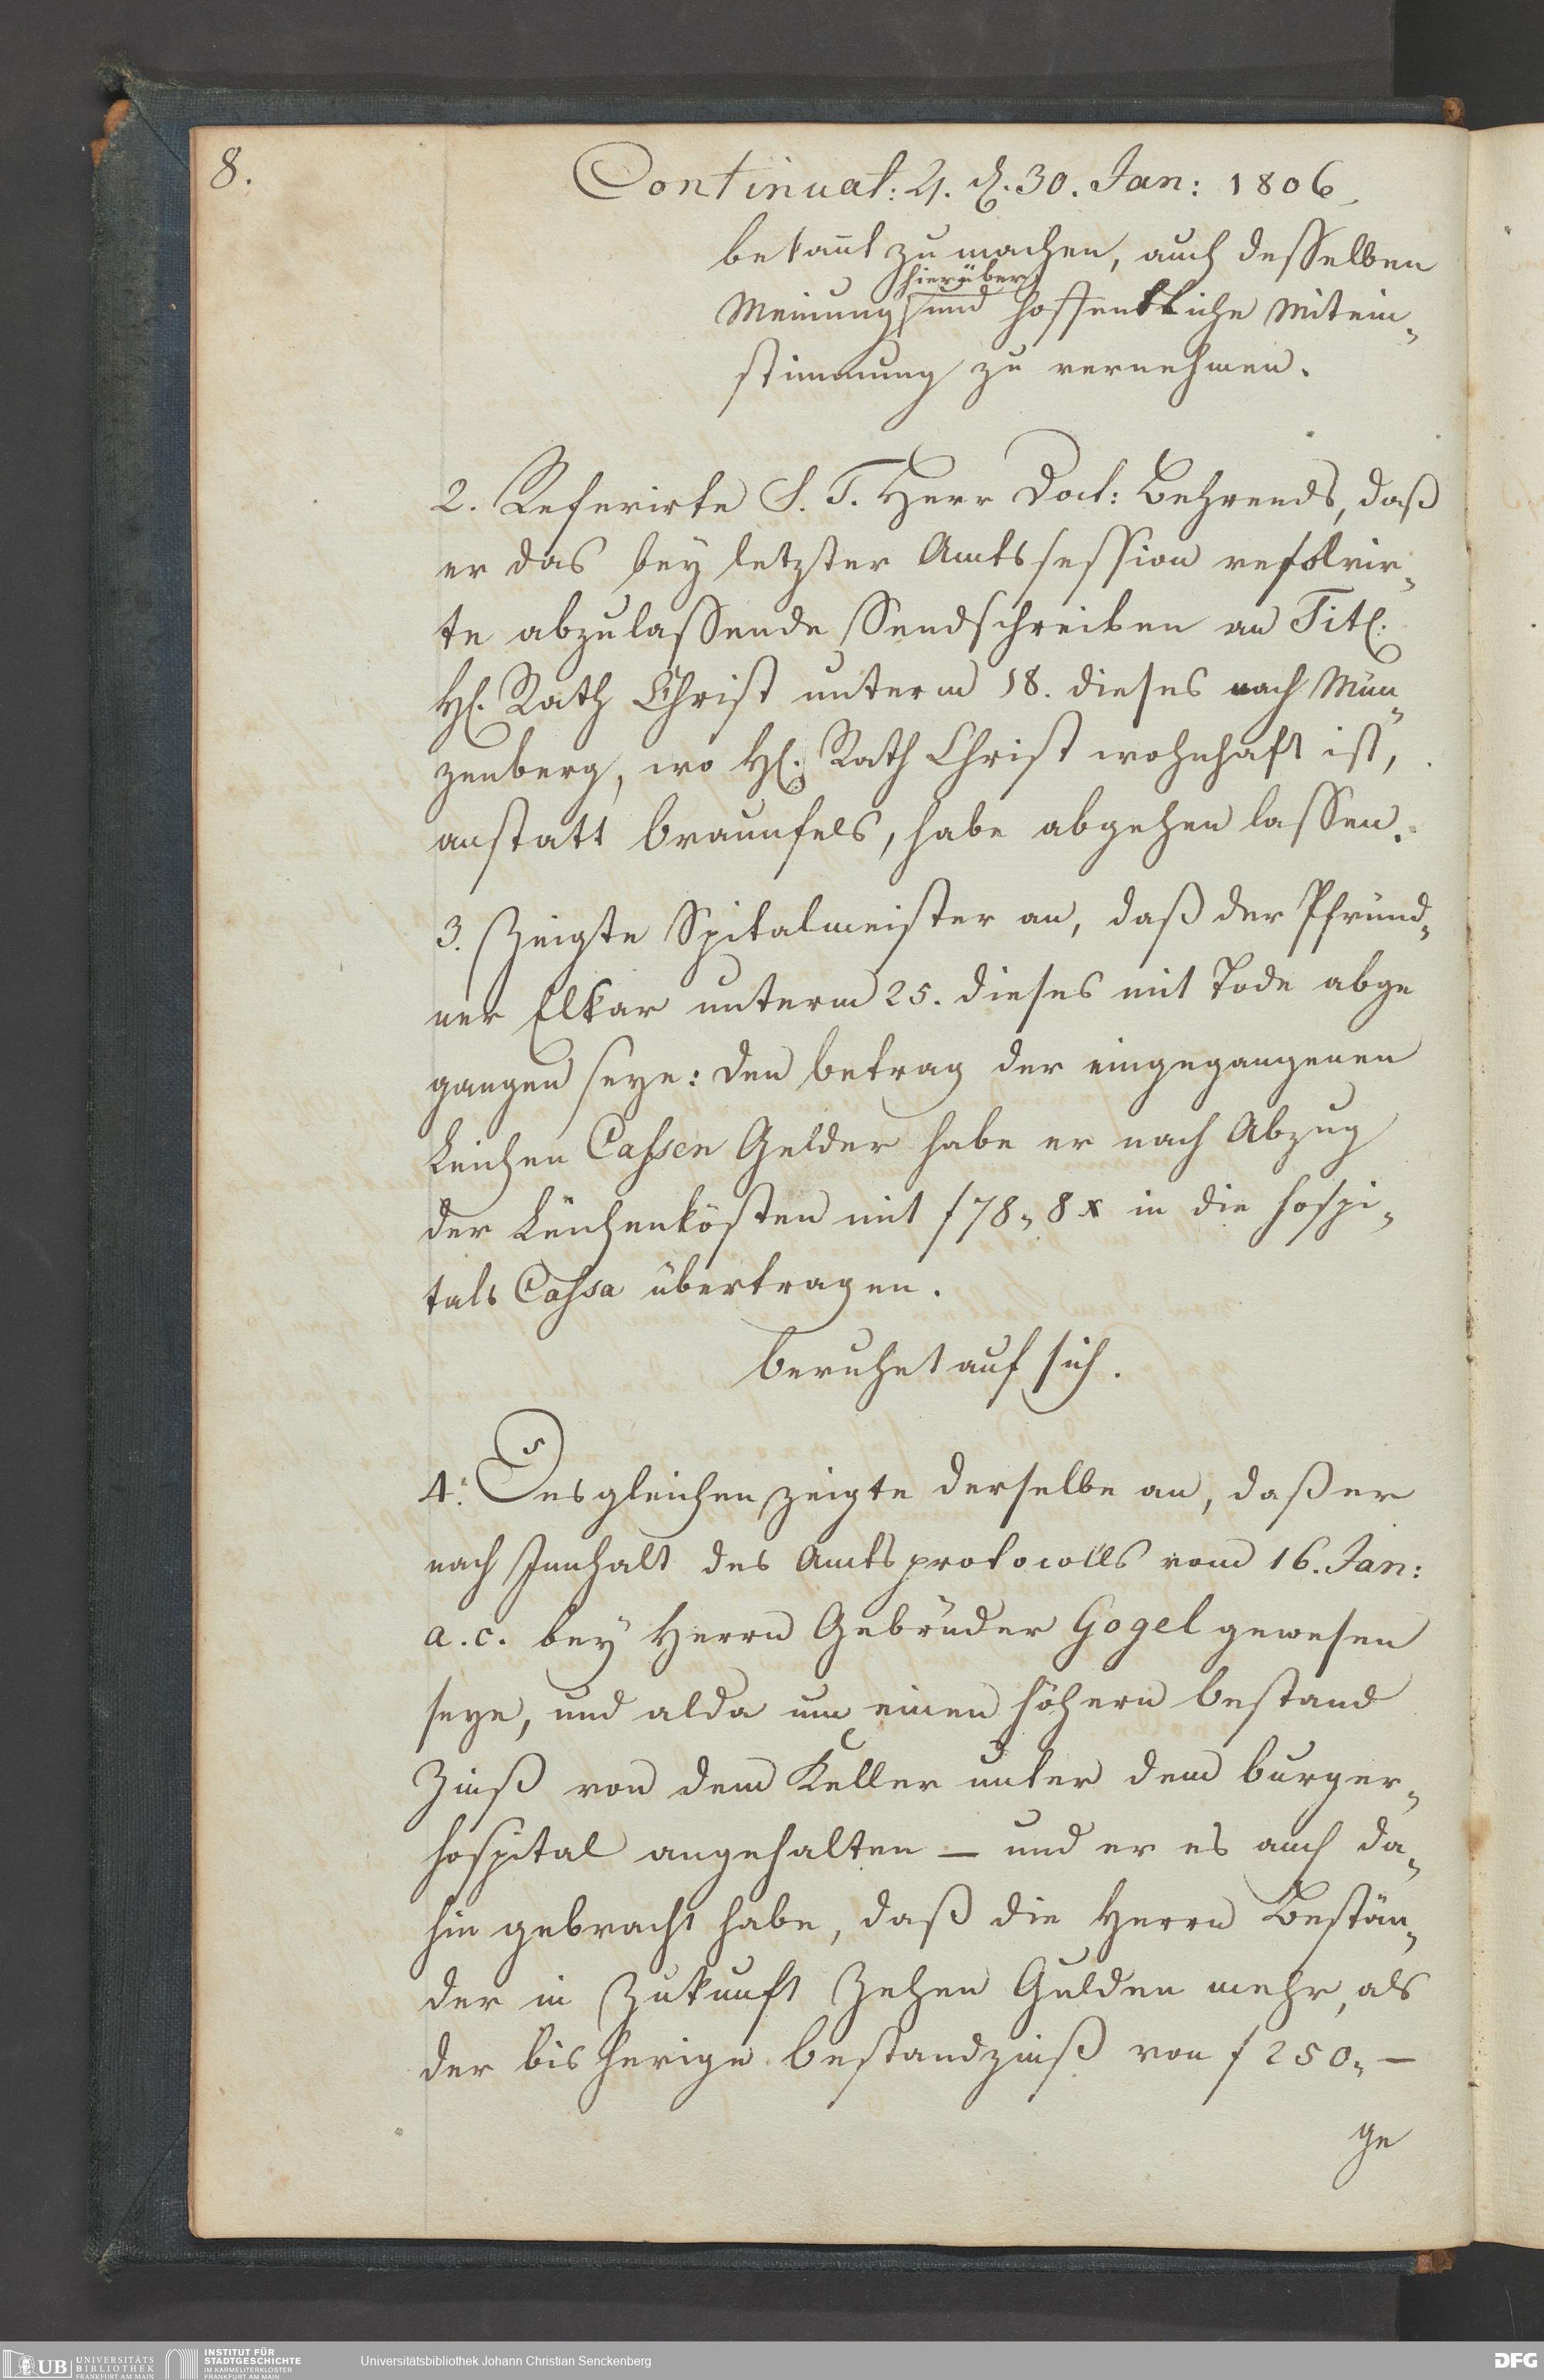 8.
Continuat: 4. d. 30. Jan: 1806.
bekañt zu machen, auch desselben
hierüber
Meinung und hoffentliche Mitein„
stimmung zu vernehmen.
2. Referirte S. T. Herr Doct: Behrends, daß
er das bey letzter Amtssession resolvir„
te abzulassende Sendschreiben an Titl:
H. Rath Christ unterm 18. dieses nach Mün„
zenberg, wo H. Rath Christ wohnhaft ist,
anstatt Braunfels, habe abgehen lassen.
3. Zeigte Spitalmeister an, daß der Pfründ„
ner Elkar unterm 25. dieses mit Tode abge
gangen seye: den betrag der eingegangenen
Leichen Cassen Gelder habe er nach Abzug
der Leichenkösten mit f 78„ 8 x in die Hospi„
tals Cassa übertragen.
beruhet auf sich.
4. Desgleichen zeigte derselbe an, daß er
nach Innhalt des Amtsprotocolls vom 16. Jan:
a. c. bey Herrn Gebrüder Gogel gewesen
seye, und alda um einen höhern bestand
Zinß von dem Keller unter dem burger„
hospital angehalten – und er es auch da„
hin gebracht habe, daß die Herrn Bestän„
der in Zukunft Zehen Gulden mehr, als
der bisherige bestandzinß von f 250„ –
ge
UB UNIVERSITÄTS
BIBLIOTHEK
FRANKFURT AM MAIN
INSTITUT FÜR
STADTGESCHICHTE
IM KARMELITERKLOSTER
FRANKFURT AM MAIN
Universitätsbibliothek Johann Christian Senckenberg
DFG